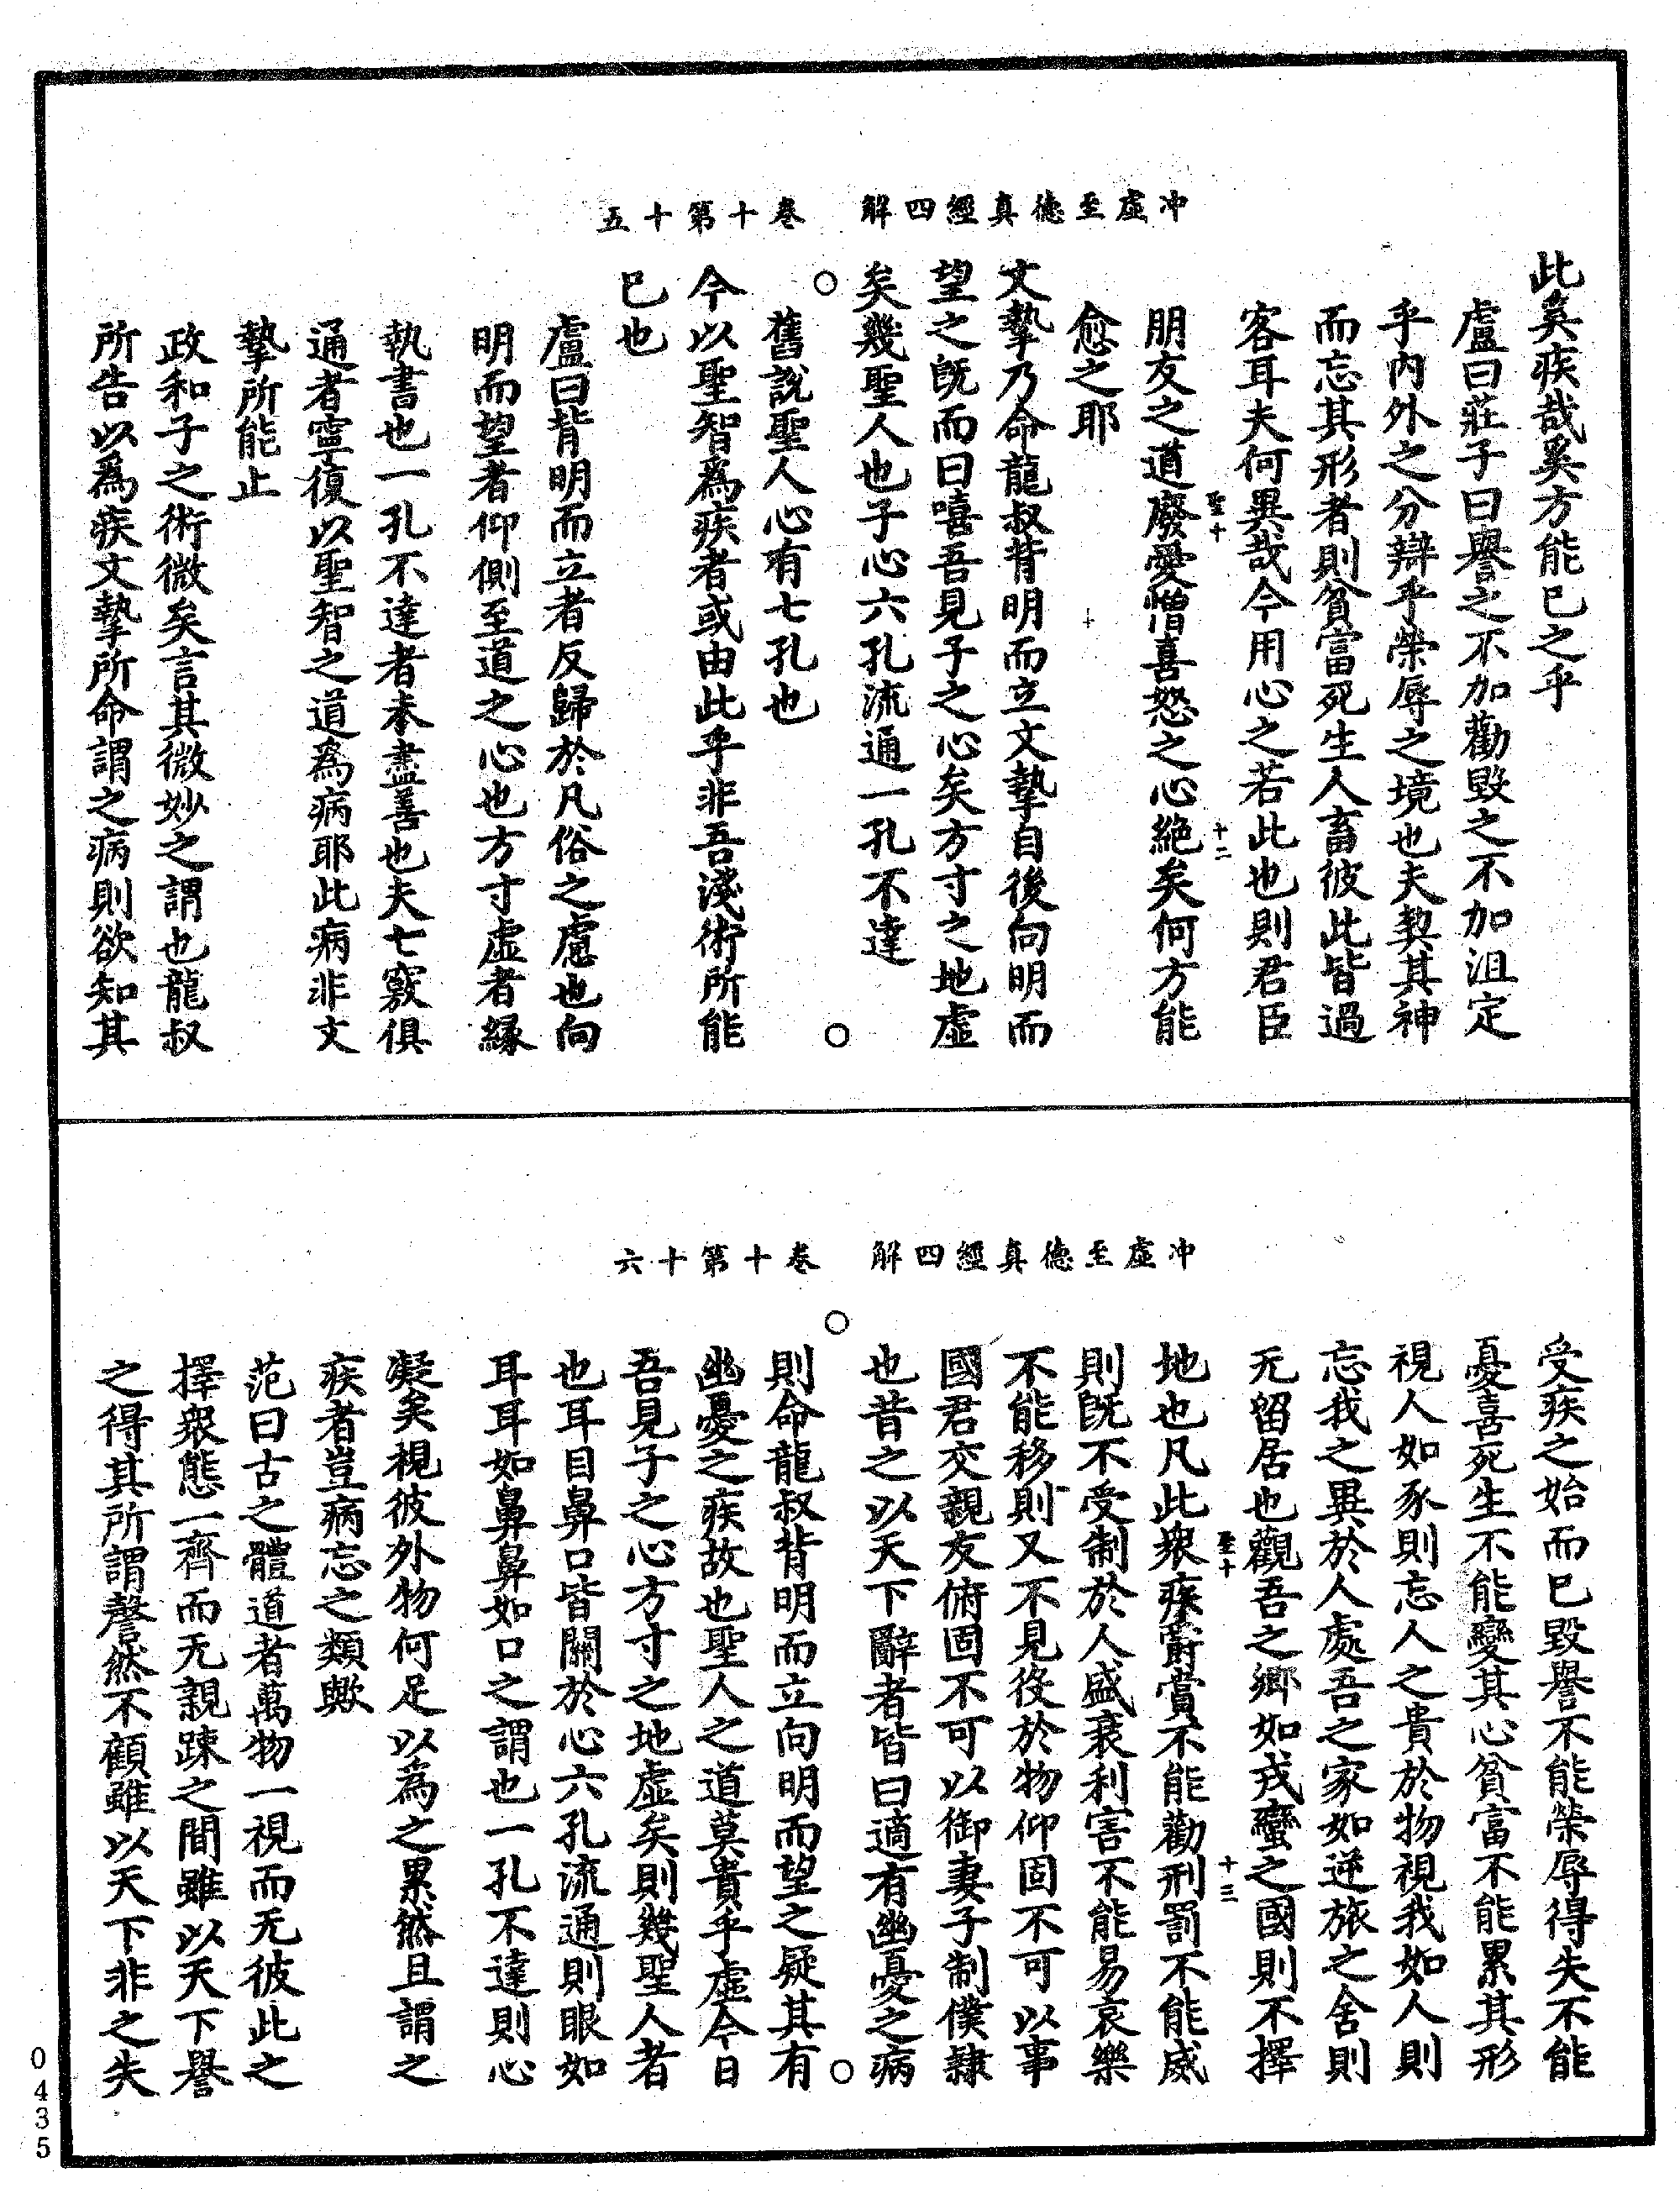 冲虛至德真經四解　卷十第十五
此奚疾哉奚方能已之乎
盧曰莊子曰譽之不加勸毀之不加沮定
乎內外之分辯乎榮辱之境也夫契其神
而忘其形者則貧富死生人畜彼此皆過
客耳夫何異哉今用心之若此也則君臣
聖十　十二
朋友之道廢愛憎喜怒之心絕矣何方能
愈之耶
文摯乃命龍叔背明而立文摯自後向明而
望之既而曰嘻吾見子之心矣方寸之地虛
矣幾聖人也子心六孔流通一孔不達
舊說聖人心有七孔也
今以聖智爲疾者或由此乎非吾淺術所能
已也
盧曰背明而立者反歸於凡俗之慮也向
明而望者仰側至道之心也方寸虛者緣
執書也一孔不達者未盡善也夫七竅俱
通者寧復以聖智之道爲病耶此病非文
摯所能止
政和子之術微矣言其微妙之謂也龍叔
所告以爲疾文摯所命謂之病則欲知其
冲虛至德真經四解　卷十第十六
受疾之始而已毀譽不能榮辱得失不能
憂喜死生不能變其心貧富不能累其形
視人如豕則忘人之貴於物視我如人則
忘我之異於人處吾之家如逆旅之舍則
无留居也觀吾之鄉如戎蠻之國則不擇
聖十　十三
地也凡此衆疾爵賞不能勸刑罰不能威
則既不受制於人盛衰利害不能易哀樂
不能移則又不見役於物仰固不可以事
國君交親友俯固不可以御妻子制僕隸
也昔之以天下辭者皆曰適有幽憂之病
則命龍叔背明而立向明而望之疑其有
幽憂之疾故也聖人之道莫貴乎虛今日
吾見子之心方寸之地虛矣則幾聖人者
也耳目鼻口皆關於心六孔流通則眼如
耳耳如鼻鼻如口之謂也一孔不達則心
凝矣視彼外物何足以爲之累然且謂之
疾者豈病忘之類歟
范曰古之體道者萬物一視而无彼此之
擇衆態一齊而无親踈之間雖以天下譽
之得其所謂謷然不顧雖以天下非之失
0435